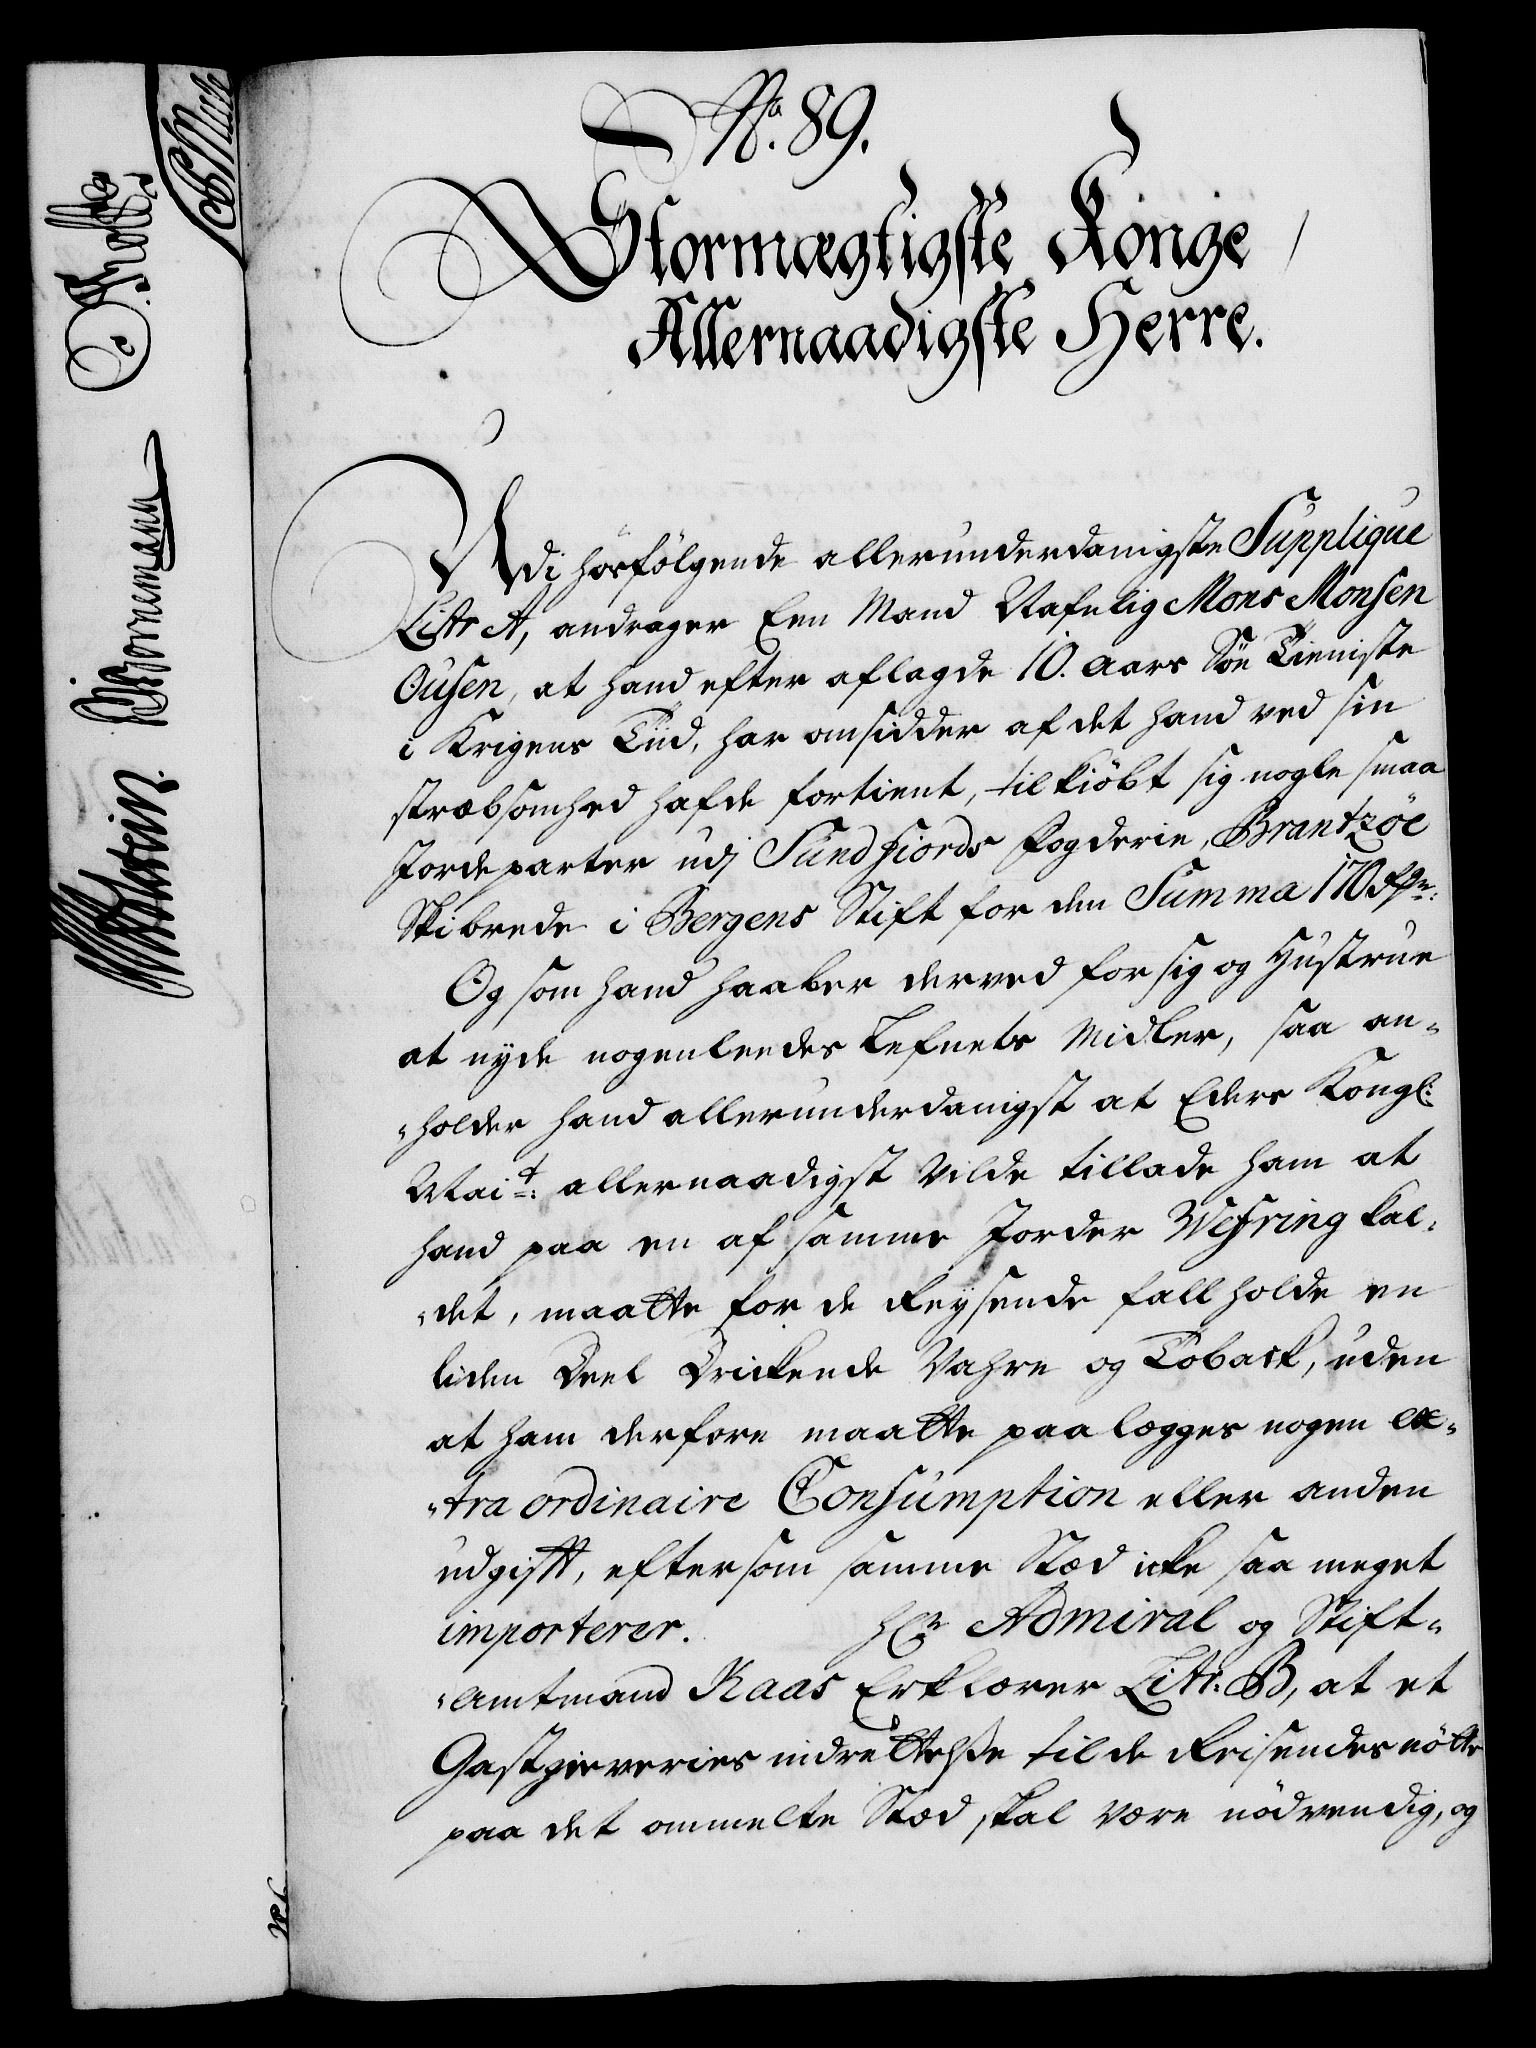 No. 89.
Stormægtigste Konge
Allernaadigste Herre.
Udi hosfølgende allerunderdanigste Supplique
Litr A, andrager Een Mand Nafnlig Mons Monsen
Ousen, at hand efter aflagde 10. aars Søe Tieniste
i Krigens Tiid, har omsidder af det hand ved sin
stræbsomhed hafde fortient, tilkiöbt sig nogle smaa
Jordeparter udj Sundfiords Fogderie, Brantzöe
Skibrede i Bergens Stift for den Summa 170
Og som hand haaber derved for sig og Hustrue
at nyde nogenleedes Lefnets Midler, saa an-
-holder hand allerunderdanigst at Eders Kongl:
Mait: allernaadigst vilde tillade ham at
hand paa en af samme Jorder Wefring kal-
-det, maatte for de Reysende fall holde en
liden Deel Drickende Vahre og Toback, uden
at ham derfore maatte paalægges nogen ex-
-tra ordinaire Consumption eller anden
udgift, eftersom samme Stæd icke saa meget
importerer. Hr Admiral og Stift-
-amtmand Raas Erklærer Litr. B, at et
Gastgieveries indrettelsse til de Reisendes nötte
paa det ommelte Stæd skal være nödvendig, og
Bornemann